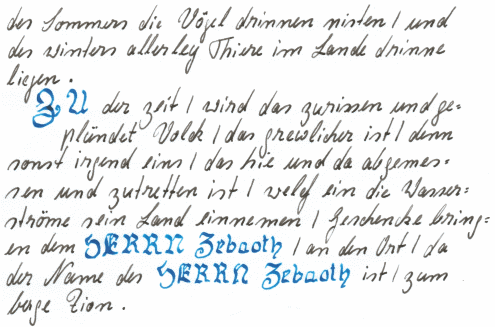 des Sommers die Vögel drinnen nisten / und
des winters allerley Thiere im Lande drinne
liegen.
ZU der zeit / wird das zurissen und ge=
plündet Volck / das grewlicher ist / denn
sonst irgend eins / das hie und da abgemes=
sen und zutretten ist / welch ein die Wasser=
ströme sein Land einnemen / Geschencke bring=
en dem HERRN Zebaoth / an den Ort / da
der Name des HERRN Zebaoth ist / zum
berge Zion.